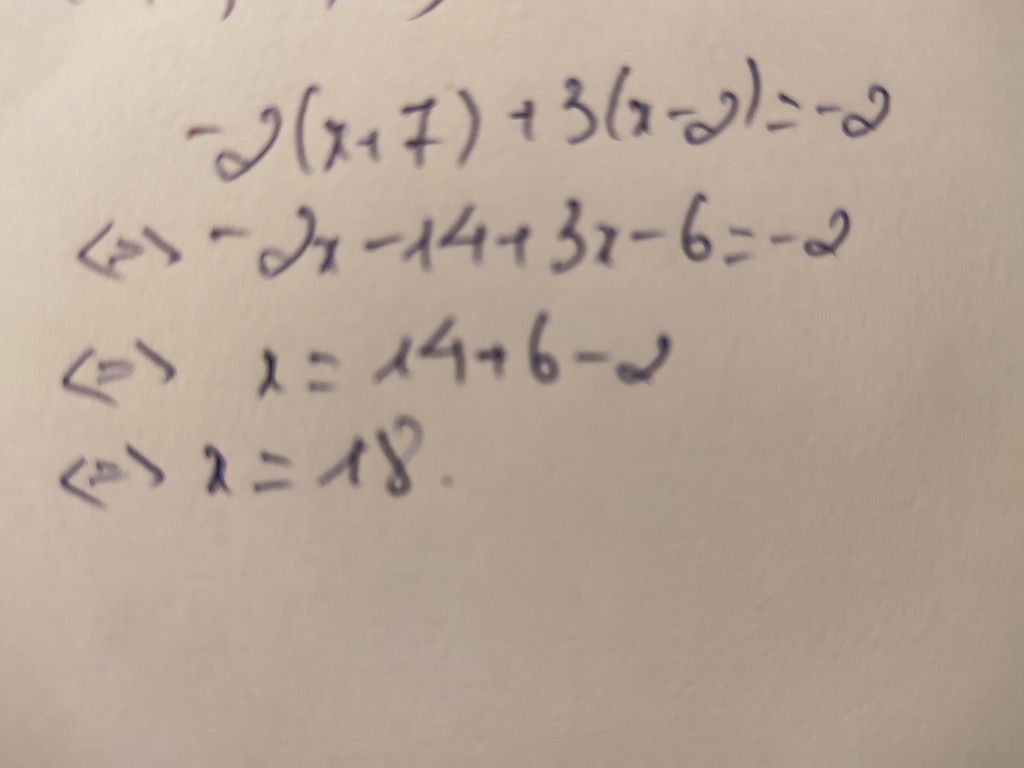 -2(x+7)+3(x-2)=-2
<=> -2x-14+3x-6=-2
<=> x=14+6-2
<=> x=18.